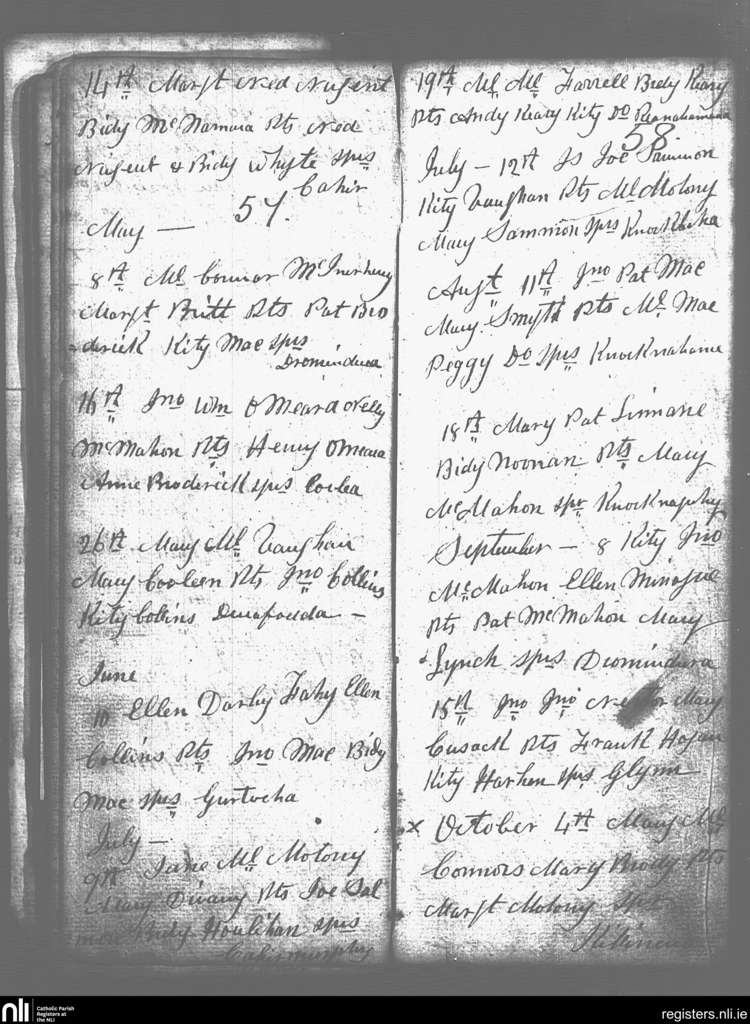 14th Margt Ned Nugent
Bidy McNamara Pts Ned
Nugent & Bidy Whyte sprs
Cahir
57.
May —
8th Ml Connor McInerheny
Margt Britt Pts Pat Bro
derick Kity Mac sprs
Dromindura
16th Jno Wm O Meara Nelly
McMahon Pts Henry O Meara
Anne Broderick sprs Coolea
26th Mary Ml Vaughan
Mary Cooleen Pts Jno Collins
Kity Collins
June
10 Ellen Darby Fahy Ellen
Collins Pts Jno Mac Bidy
Mac sprs Gurtocha
July —
9th Jane Ml Molony
Mary Pts Joe Sal
Bidy Houlihan sprs
Cahirmurphy
19th Ml Ml Farrell Bidy Keary
Pts Andy Keary Kity Do
58
July — 12th Js Joe Sammon
Kity Vaughan Pts Ml Molony
Mary Sammon sprs
Augt 11th Jno Pat Mac
Mary Smyth Pts Ml Mac
Peggy Do sprs Knocknahama
18th Mary Pat Linnane
Bidy Noonan Pts Mary
McMahon spr
September — 8 Kity Jno
McMahon Ellen Minogue
Pts Pat McMahon Mary
Lynch sprs Dromindura
15th Jno Jno Mary
Cusack Pts Frank Hogan
Kity Harhen sprs Glynn
x October 4th Mary Ml
Connors Mary Brody Pts
Margt Molony spr
nli
Catholic Parish
Registers at
the NLI
registers.nli.ie